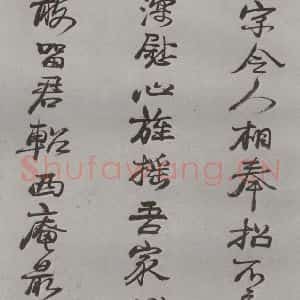 字令人相奉招不
深慰心旌摇吾家
敢留君轺西庵最
Shufawang.CN